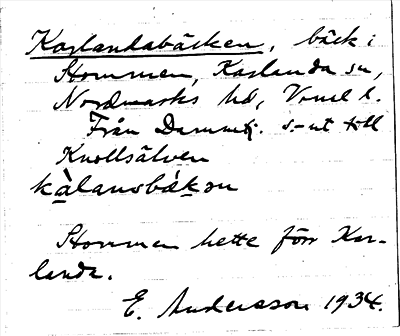 Karlandabäcken, bäck i
Stommen, Karlanda sn,
Nordmarks hd, Vrml l.
Från Dammtj. s.-ut till
Knollsälven
kàlansbækən
Stommen hette förr Kar-
landa.
E. Andersson 1934.